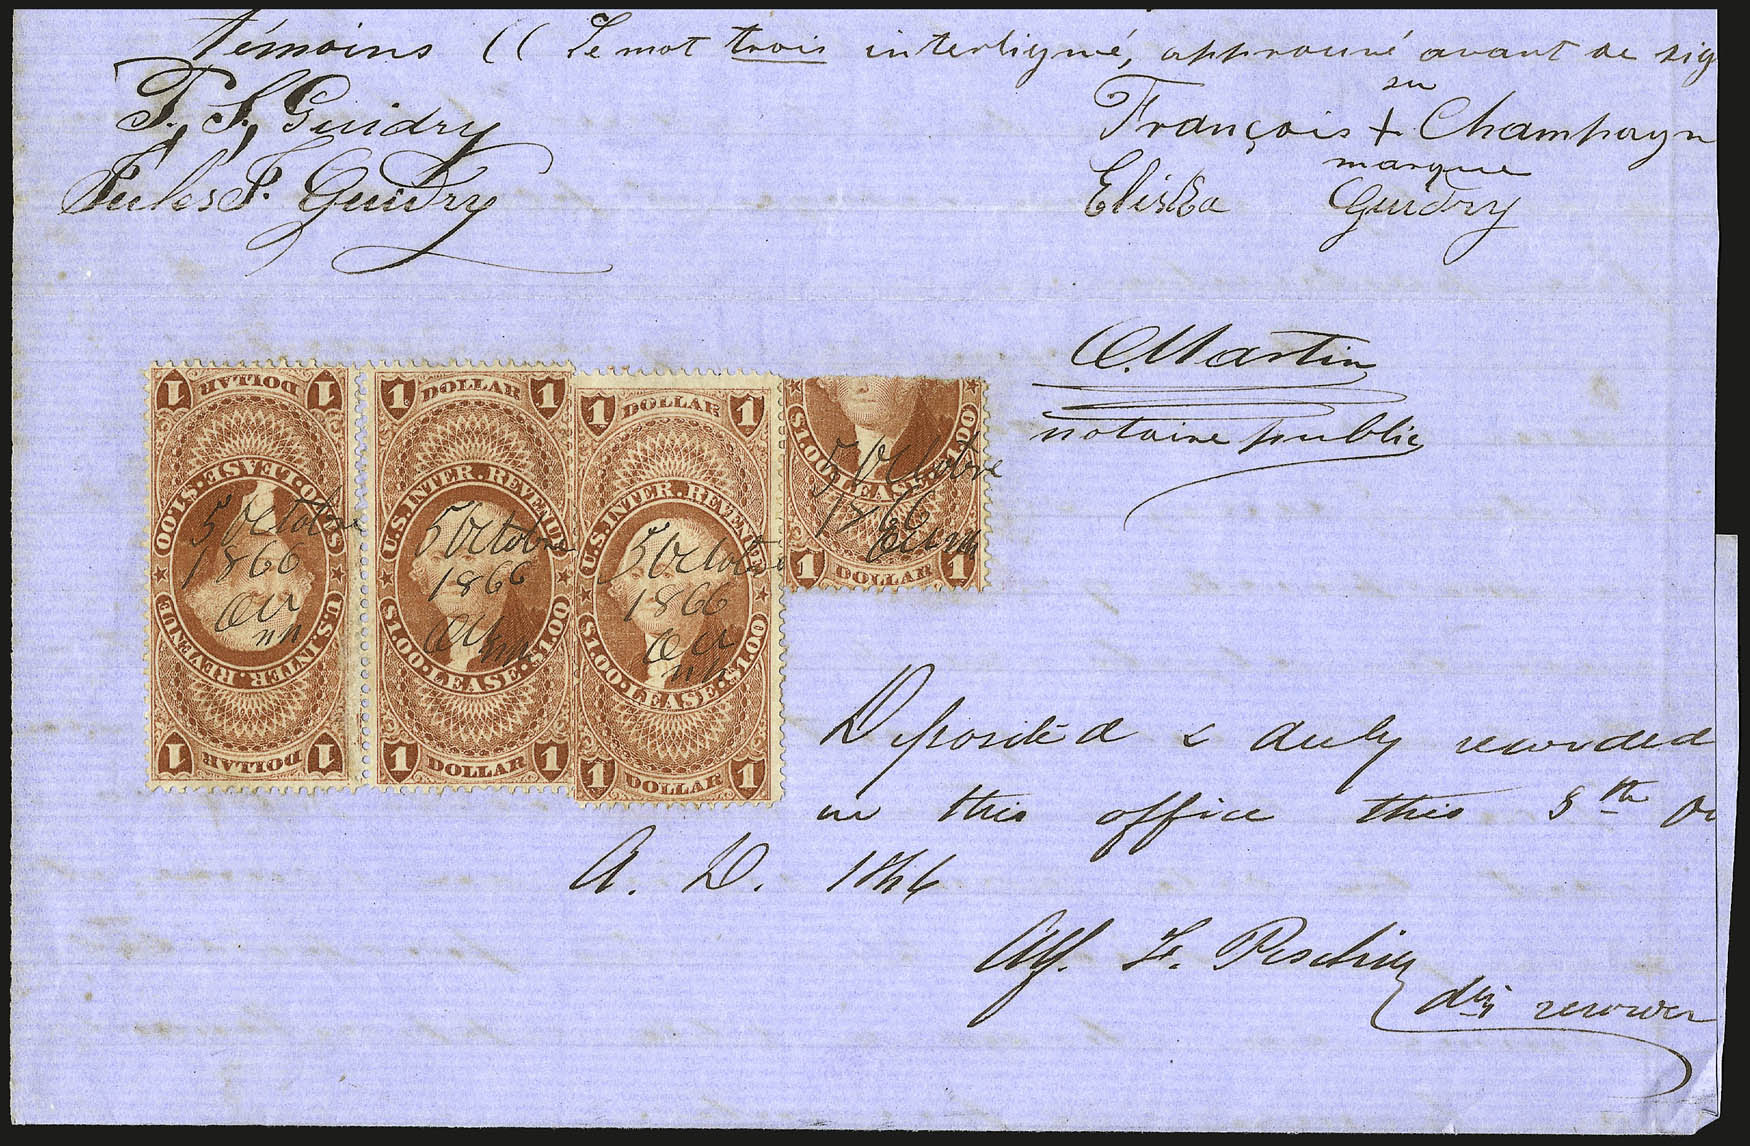 Témoins (( Le mot trois interligné, approuvé avant de sig
T, S, Guidry
Jules F. Guidry
sa
François + Champagn
marque
Eliska Guidry
O. Martin
notaire public
1 DOLLAR 1
U.S. INTER. REVENUE
$1.00 · LEASE · $1.00
1 DOLLAR 1
5 Octobre
1866
1 DOLLAR 1
U.S. INTER. REVENUE
$1.00 · LEASE · $1.00
1 DOLLAR 1
5 Octobre
1866
1 DOLLAR 1
U.S. INTER. REVENUE
$1.00 · LEASE · $1.00
1 DOLLAR 1
5 Octobre
1866
$1.00 · LEASE · $1.00
1 DOLLAR 1
5 Octobre
1866
Deposited & duly recorded
in this office this 8th Oc
A. D. 1866
Alf.
dy recorder